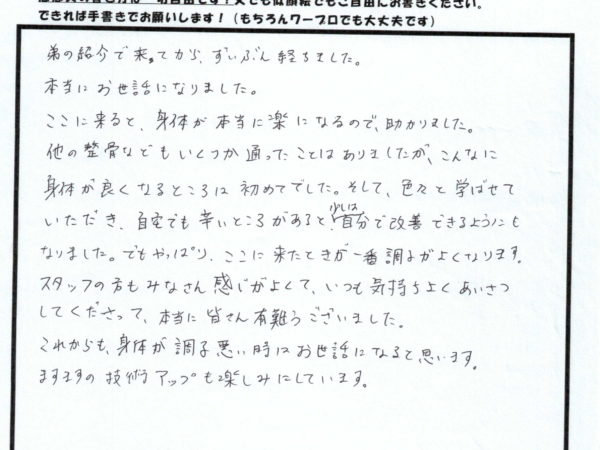 できれば手書きでお願いします！（もちろんワープロでも大丈夫です）
弟の紹介で来てから、ずいぶん経ちました。
本当にお世話になりました。
ここに来ると、身体が本当に楽になるので、助かりました。
他の整骨などもいくつか通ったことはありましたが、こんなに
身体が良くなるところは初めてでした。そして、色々と学ばせて
いただき、自宅でも辛いところがあると、少しは自分で改善できるようにも
なりました。でもやっぱり、ここに来たときが一番調子がよくなります。
スタッフの方もみなさん感じがよくて、いつも気持ちよくあいさつ
してくださって、本当に皆さん有難うございました。
これからも、身体が調子悪い時にお世話になると思います。
ますますの技術アップも楽しみにしています。